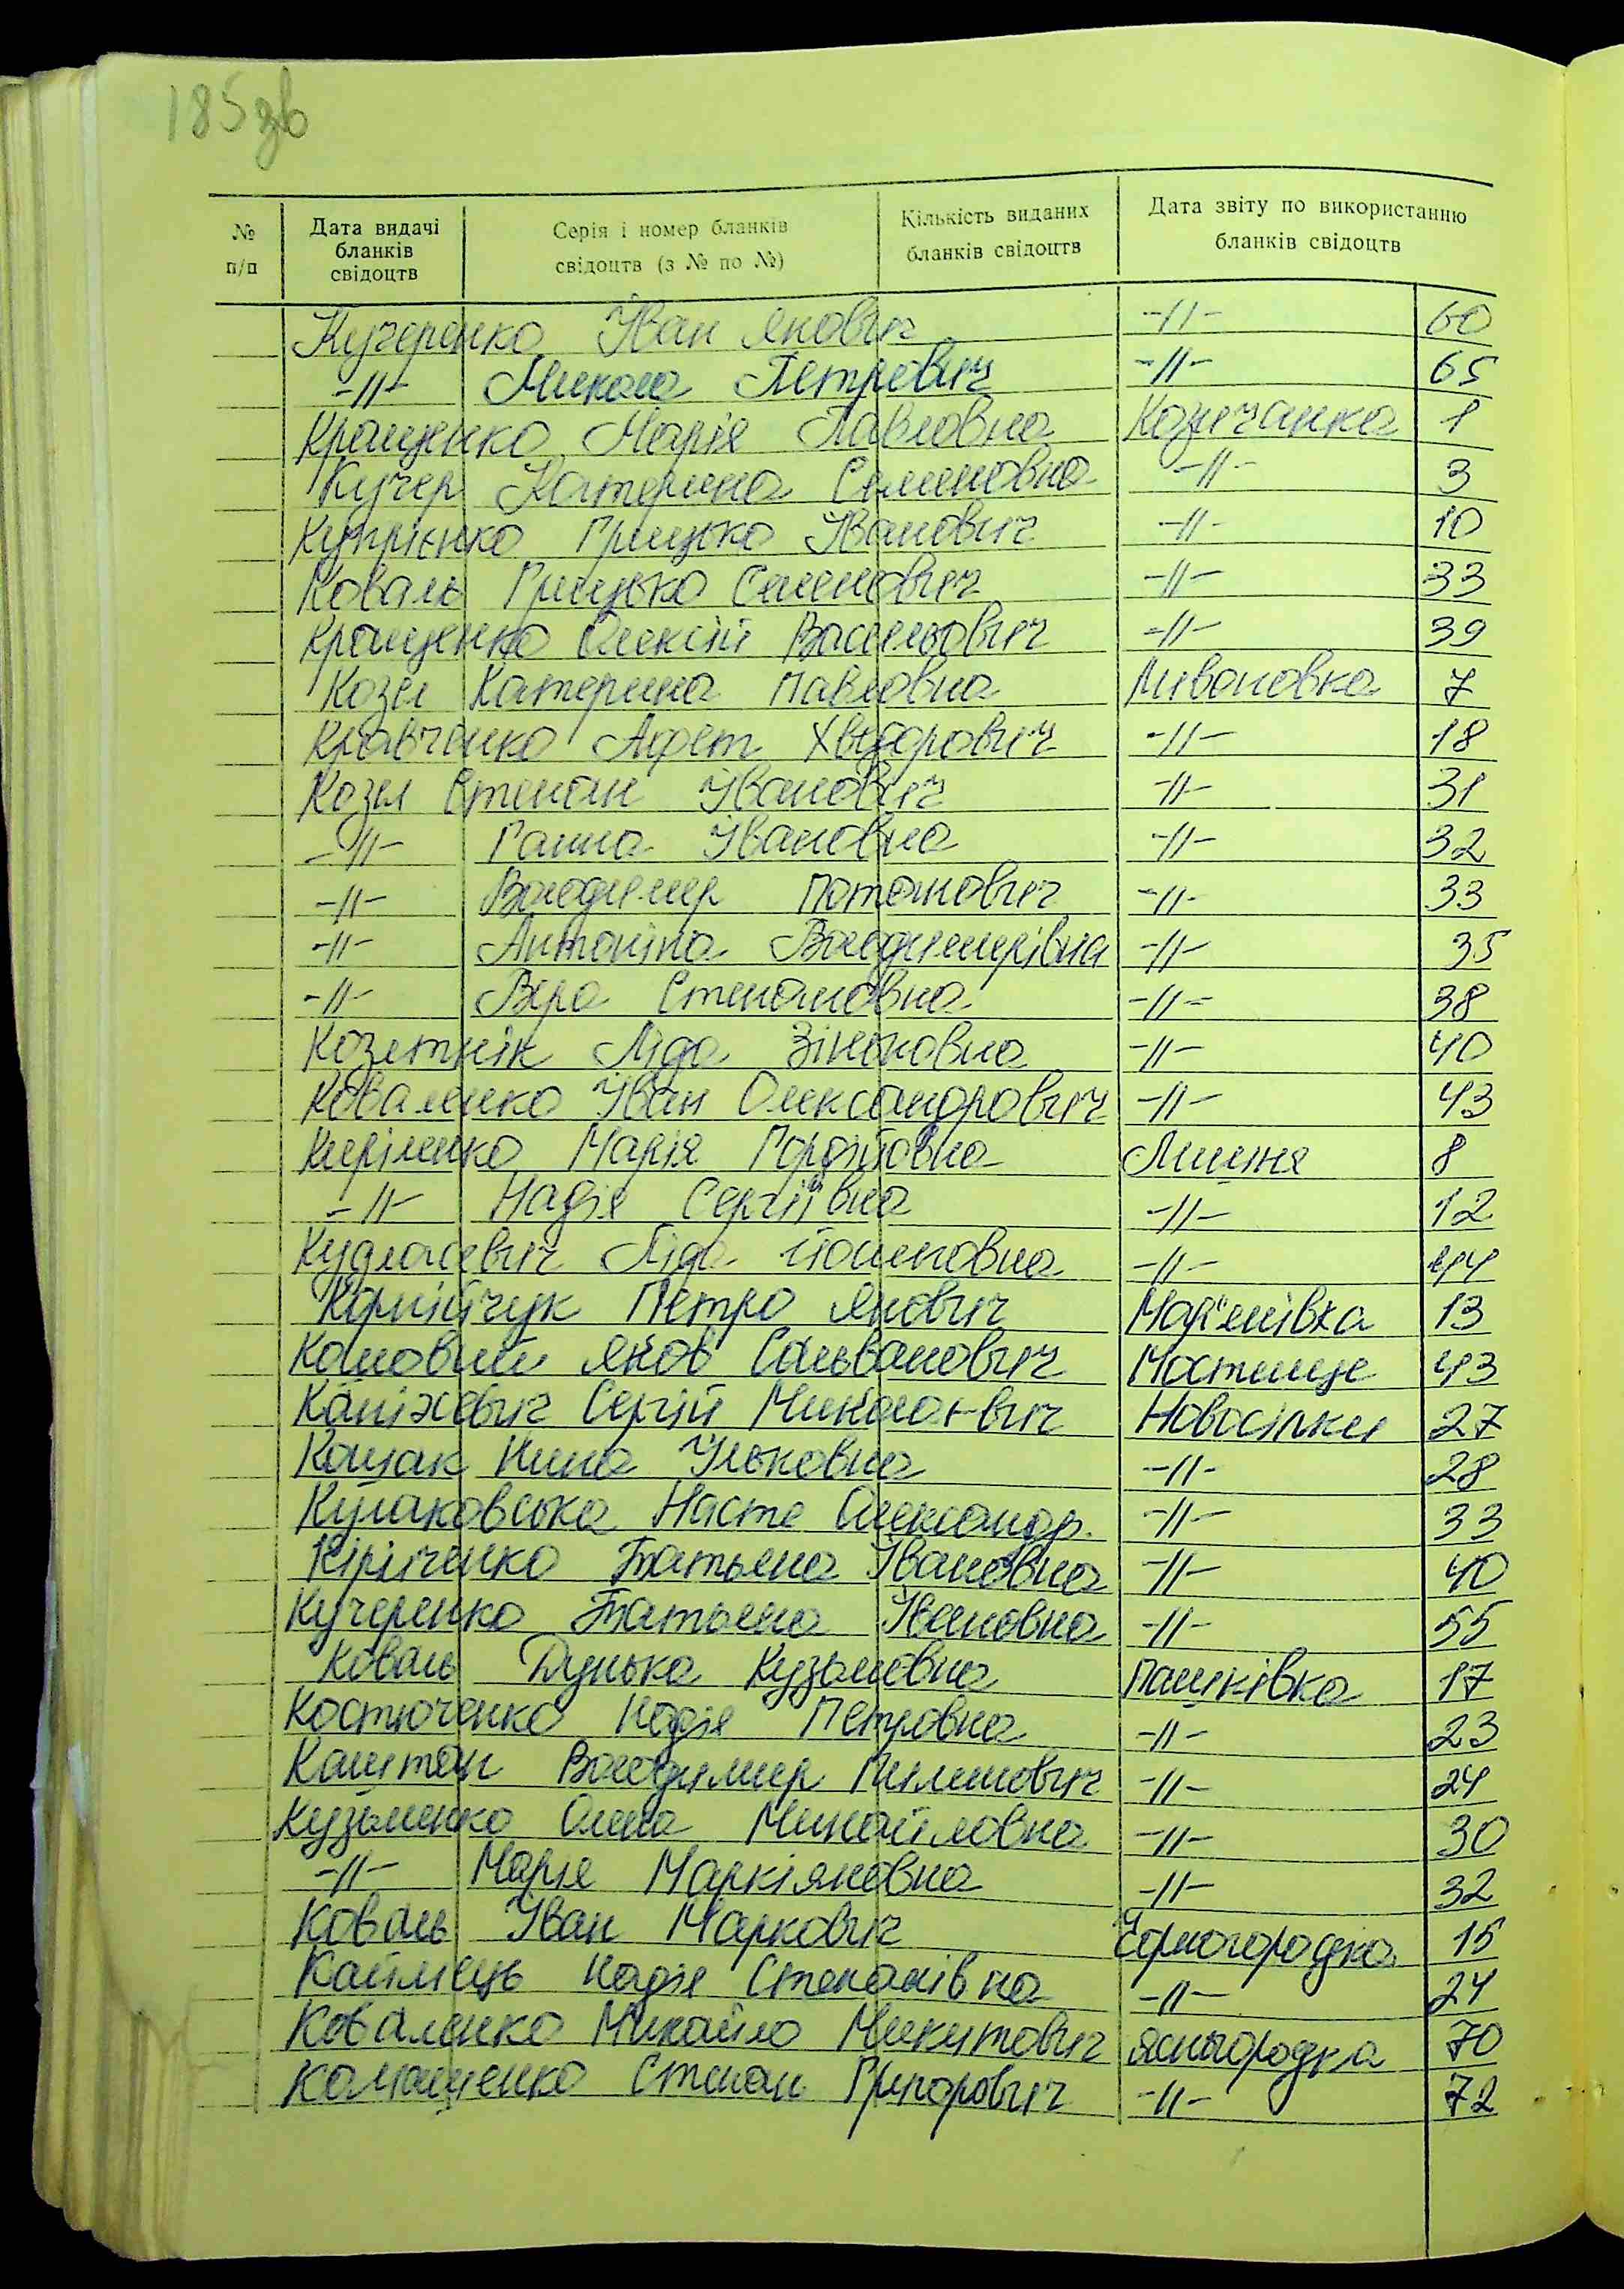 185зв
№ п/п | Дата видачі бланків свідоцтв | Серія і номер бланків свідоцтв (з № по №) | Кількість виданих бланків свідоцтв | Дата звіту по використанню бланків свідоцтв
Кучеренко Іван Якович -//- 60
-//- Микола Петрович -//- 65
Кращенко Марія Павловна Козичанка 1
Кучер Катерина Семеновна -//- 3
Купрієнко Грицько Іванович -//- 10
Коваль Грицько Семенович -//- 33
Кращенко Олексій Васильович -//- 39
Козел Катерина Павловна Ливановка 7
Кравченко Афет Хведорович -//- 18
Козел Степан Іванович -//- 31
-//- Ганна Івановна -//- 32
-//- Володимир Потапович -//- 33
-//- Антоніна Володимирівна -//- 35
-//- Віра Степановна -//- 38
Козетнік Ліда Зіньковна -//- 40
Коваленко Іван Олександрович -//- 43
Кириленко Марія Гордійовна Лишня 8
-//- Надія Сергіївна -//- 12
Ліда -//- 44
Корнійчук Петро Якович Мар'янівка 13
Яков Сильванович Мостище 43
Каніжевич Сергій Миколаевич Новосілки 27
Кошак Нина Ільковна -//- 28
Кулаковська Настя Олександр. -//- 33
Кіріченко Татьяна Івановна -//- 40
Кучеренко Татьяна Івановна -//- 55
Коваль Дунька Кузьмовна Пашківка 17
Костюченко Надія Петровна -//- 23
Каштан Володимир Пилипович -//- 24
Кузьменко Олена Михайловна -//- 30
-//- Марія Маркіяновна -//- 32
Коваль Іван Маркович Чорногородка 15
Каймець Надія Степанівна -//- 24
Коваленко Михайло Микитович Ясныгородка 70
Комащенко Степан Григорович -//- 72